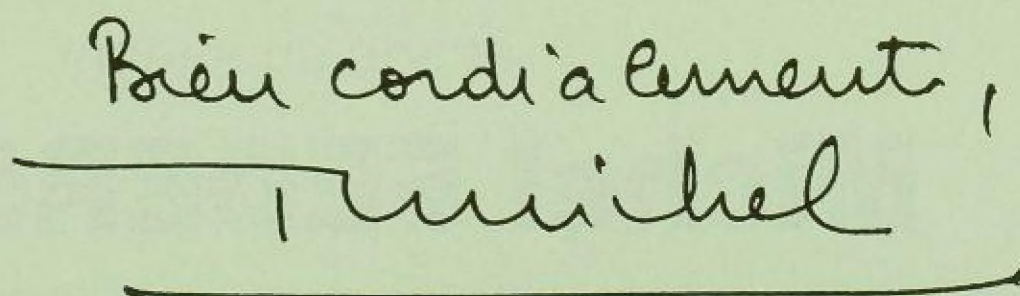 Bien cordialement,
Tmichel